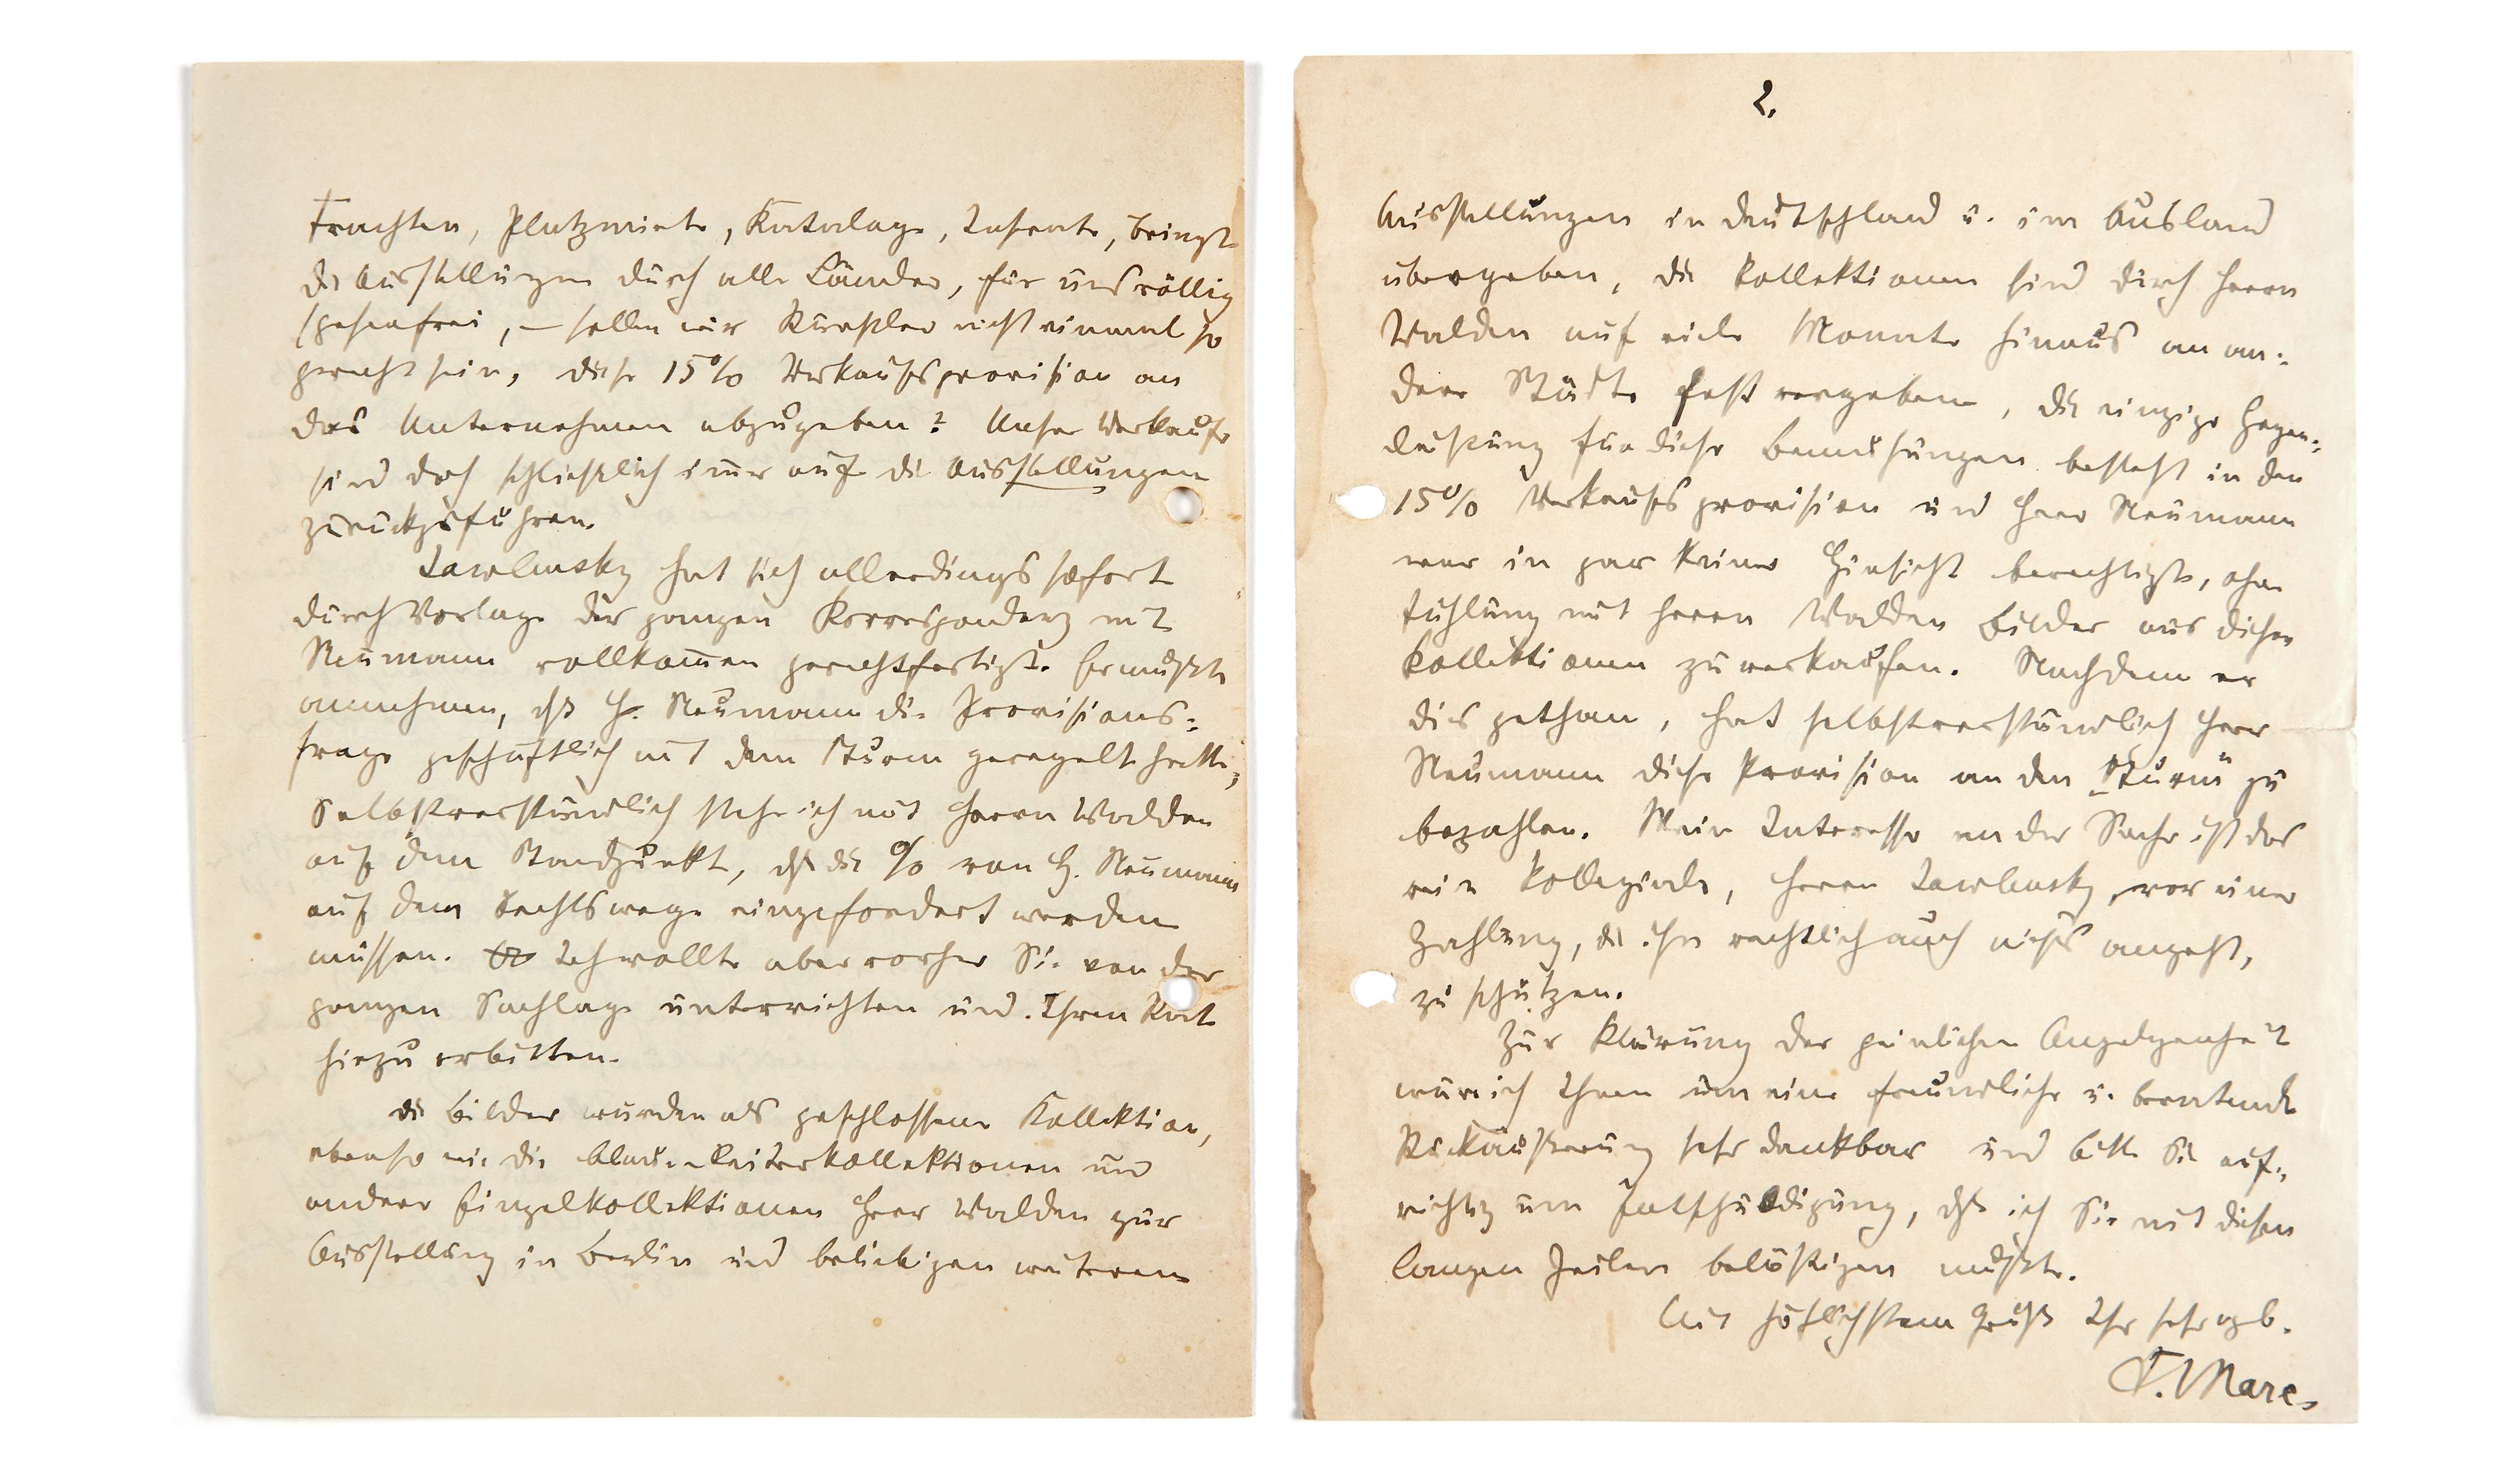 Frachten, Platzmiete, Kataloge, Inserate, bringt
die Ausstellungen durch alle Länder, für uns völlig
spesenfrei, – sollen wir Künstler nicht einmal so
gerecht sein, diese 15% Verkaufsprovision an
das Unternehmen abzugeben? Unsere Verkäufe
sind doch schließlich immer auf die Ausstellungen
zurückzuführen.
Jawlensky hat sich allerdings sofort
durch Vorlage der ganzen Korrespondenz mit
Neumann vollkommen gerechtfertigt. Er mußte
annehmen, daß H. Neumann die Provisions:
frage geschäftlich mit dem Sturm geregelt hatte;
Selbstverständlich stehe ich mit Herrn Walden
auf dem Standpunkt, daß die % von H. Neumann
auf dem Rechtswege eingefordert werden
müssen. Ich wollte aber vorher Sie von der
ganzen Sachlage unterrichten und Ihren Rat
hiezu erbitten.
Die Bilder wurden als geschlossene Kollektion,
ebenso wie die blaue-Reiterkollektionen und
andere Einzelkollektionen Herr Walden zur
Ausstellung in Berlin und beliebigen weiteren
2.
Ausstellungen in Deutschland u. im Ausland
übergeben, die Kollektionen sind durch Herrn
Walden auf viele Monate hinaus an an:
dere Städte fest vergeben, die einzige Gegen:
leistung für diese Bemühungen besteht in den
15% Verkaufsprovision und Herr Neumann
war in gar keiner Hinsicht berechtigt, ohne
Fühlung mit Herrn Walden Bilder aus diesen
Kollektionen zu verkaufen. Nachdem er
dies gethan, hat selbstverständlich Herr
Neumann diese Provision an den „Sturm" zu
bezahlen. Mein Interesse an der Sache ist das
rein kollegiale, Herrn Jawlensky vor einer
Zahlung, die ihn rechtlich auch nichts angeht,
zu schützen.
Zur Klärung der peinlichen Angelegenheit
wäre ich Ihnen um eine freundliche u. beratende
Rückäußerung sehr dankbar und bitte Sie auf:
richtig um Entschuldigung, daß ich Sie mit diesen
langen Zeilen belästigen mußte.
Mit höflichstem Gruß Ihr sehr ergb.
F. Marc.